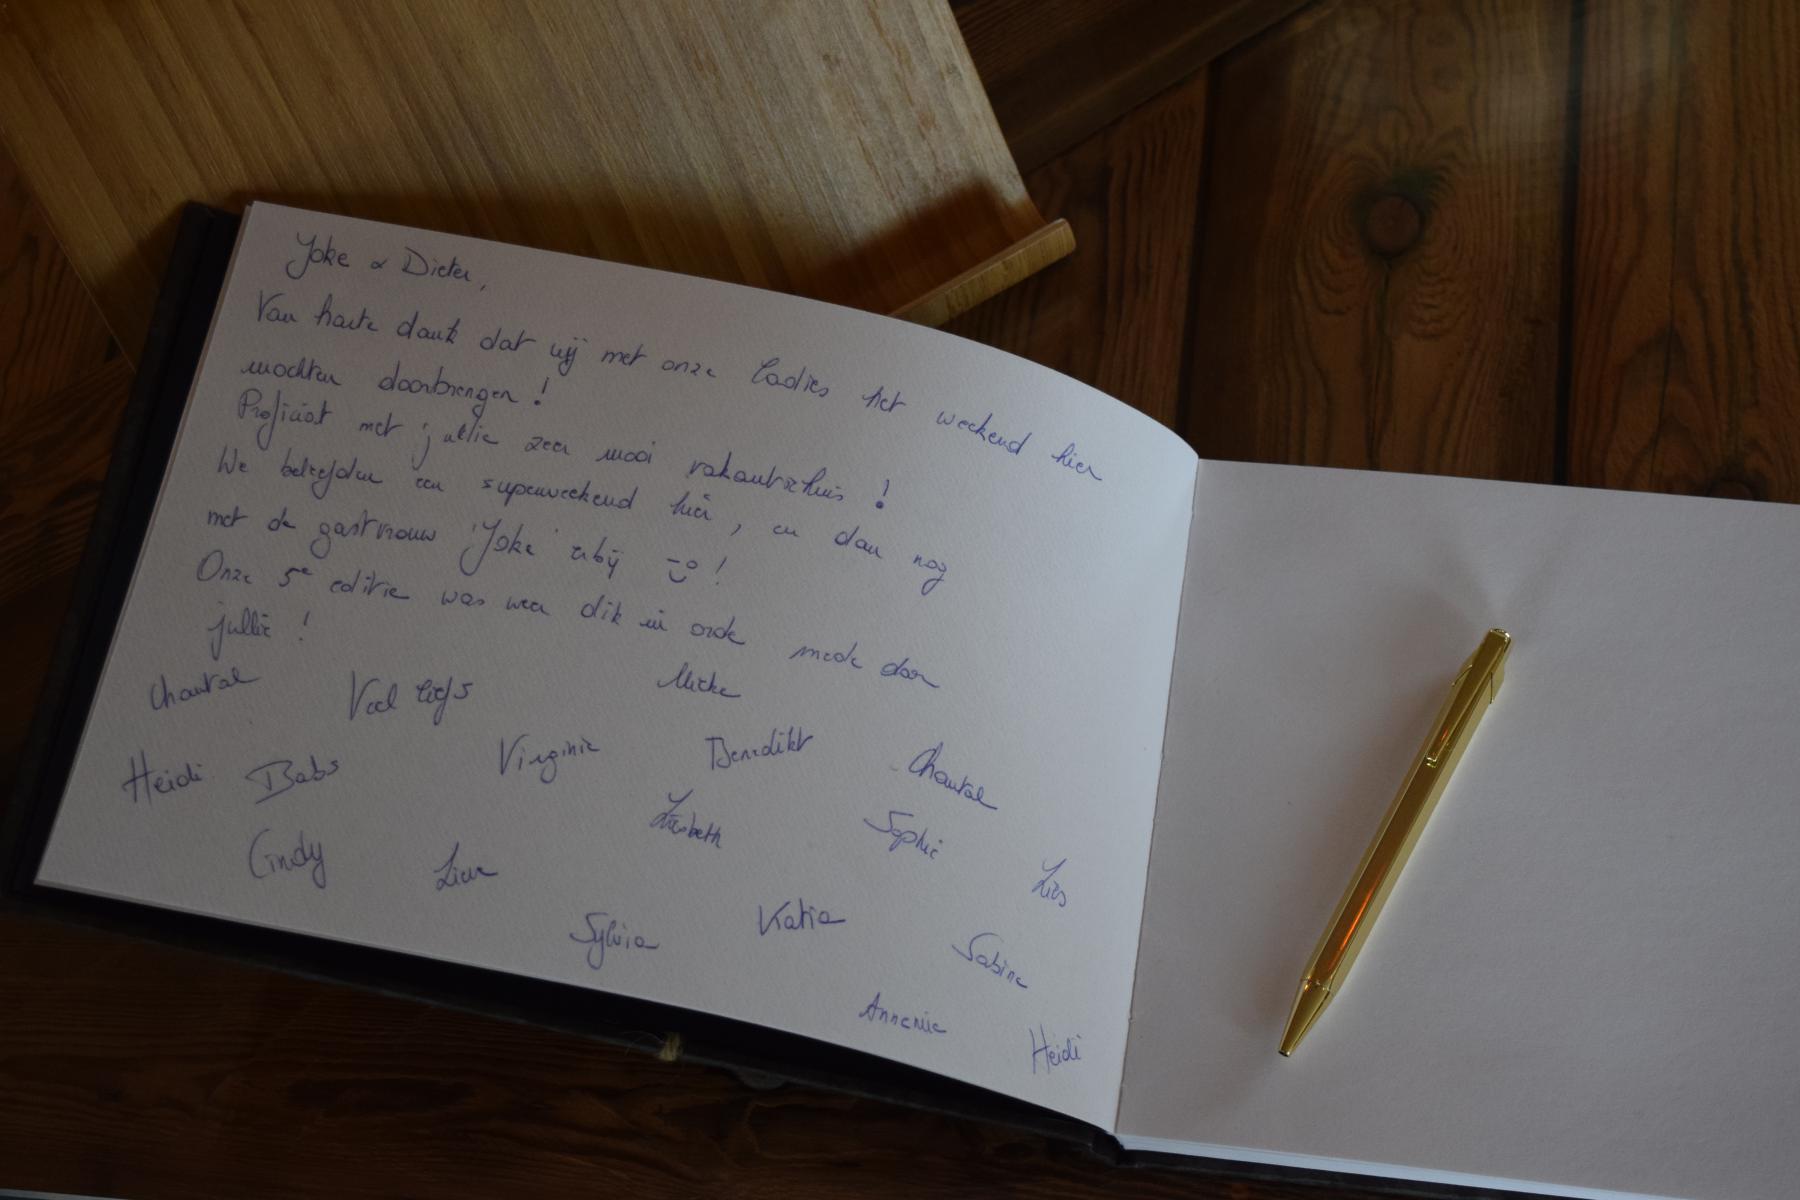 Joke & Dieter,
Van harte dank dat wij met onze ladies het weekend hier
mochten doorbrengen !
Proficiat met jullie zeer mooi vakantiehuis !
We beleefden een superweekend hier, en dan nog
met de gastvrouw 'Joke' erbij !
Onze 5e editie was weer dik in orde mede door
jullie !
Chantal Veel liefs Mieke
Heidi Babs Virginie Benedikt Chantal
Cindy Lieve Liesbeth Sophie Lies
Sylvia Katia Sabine
Annemie Heidi